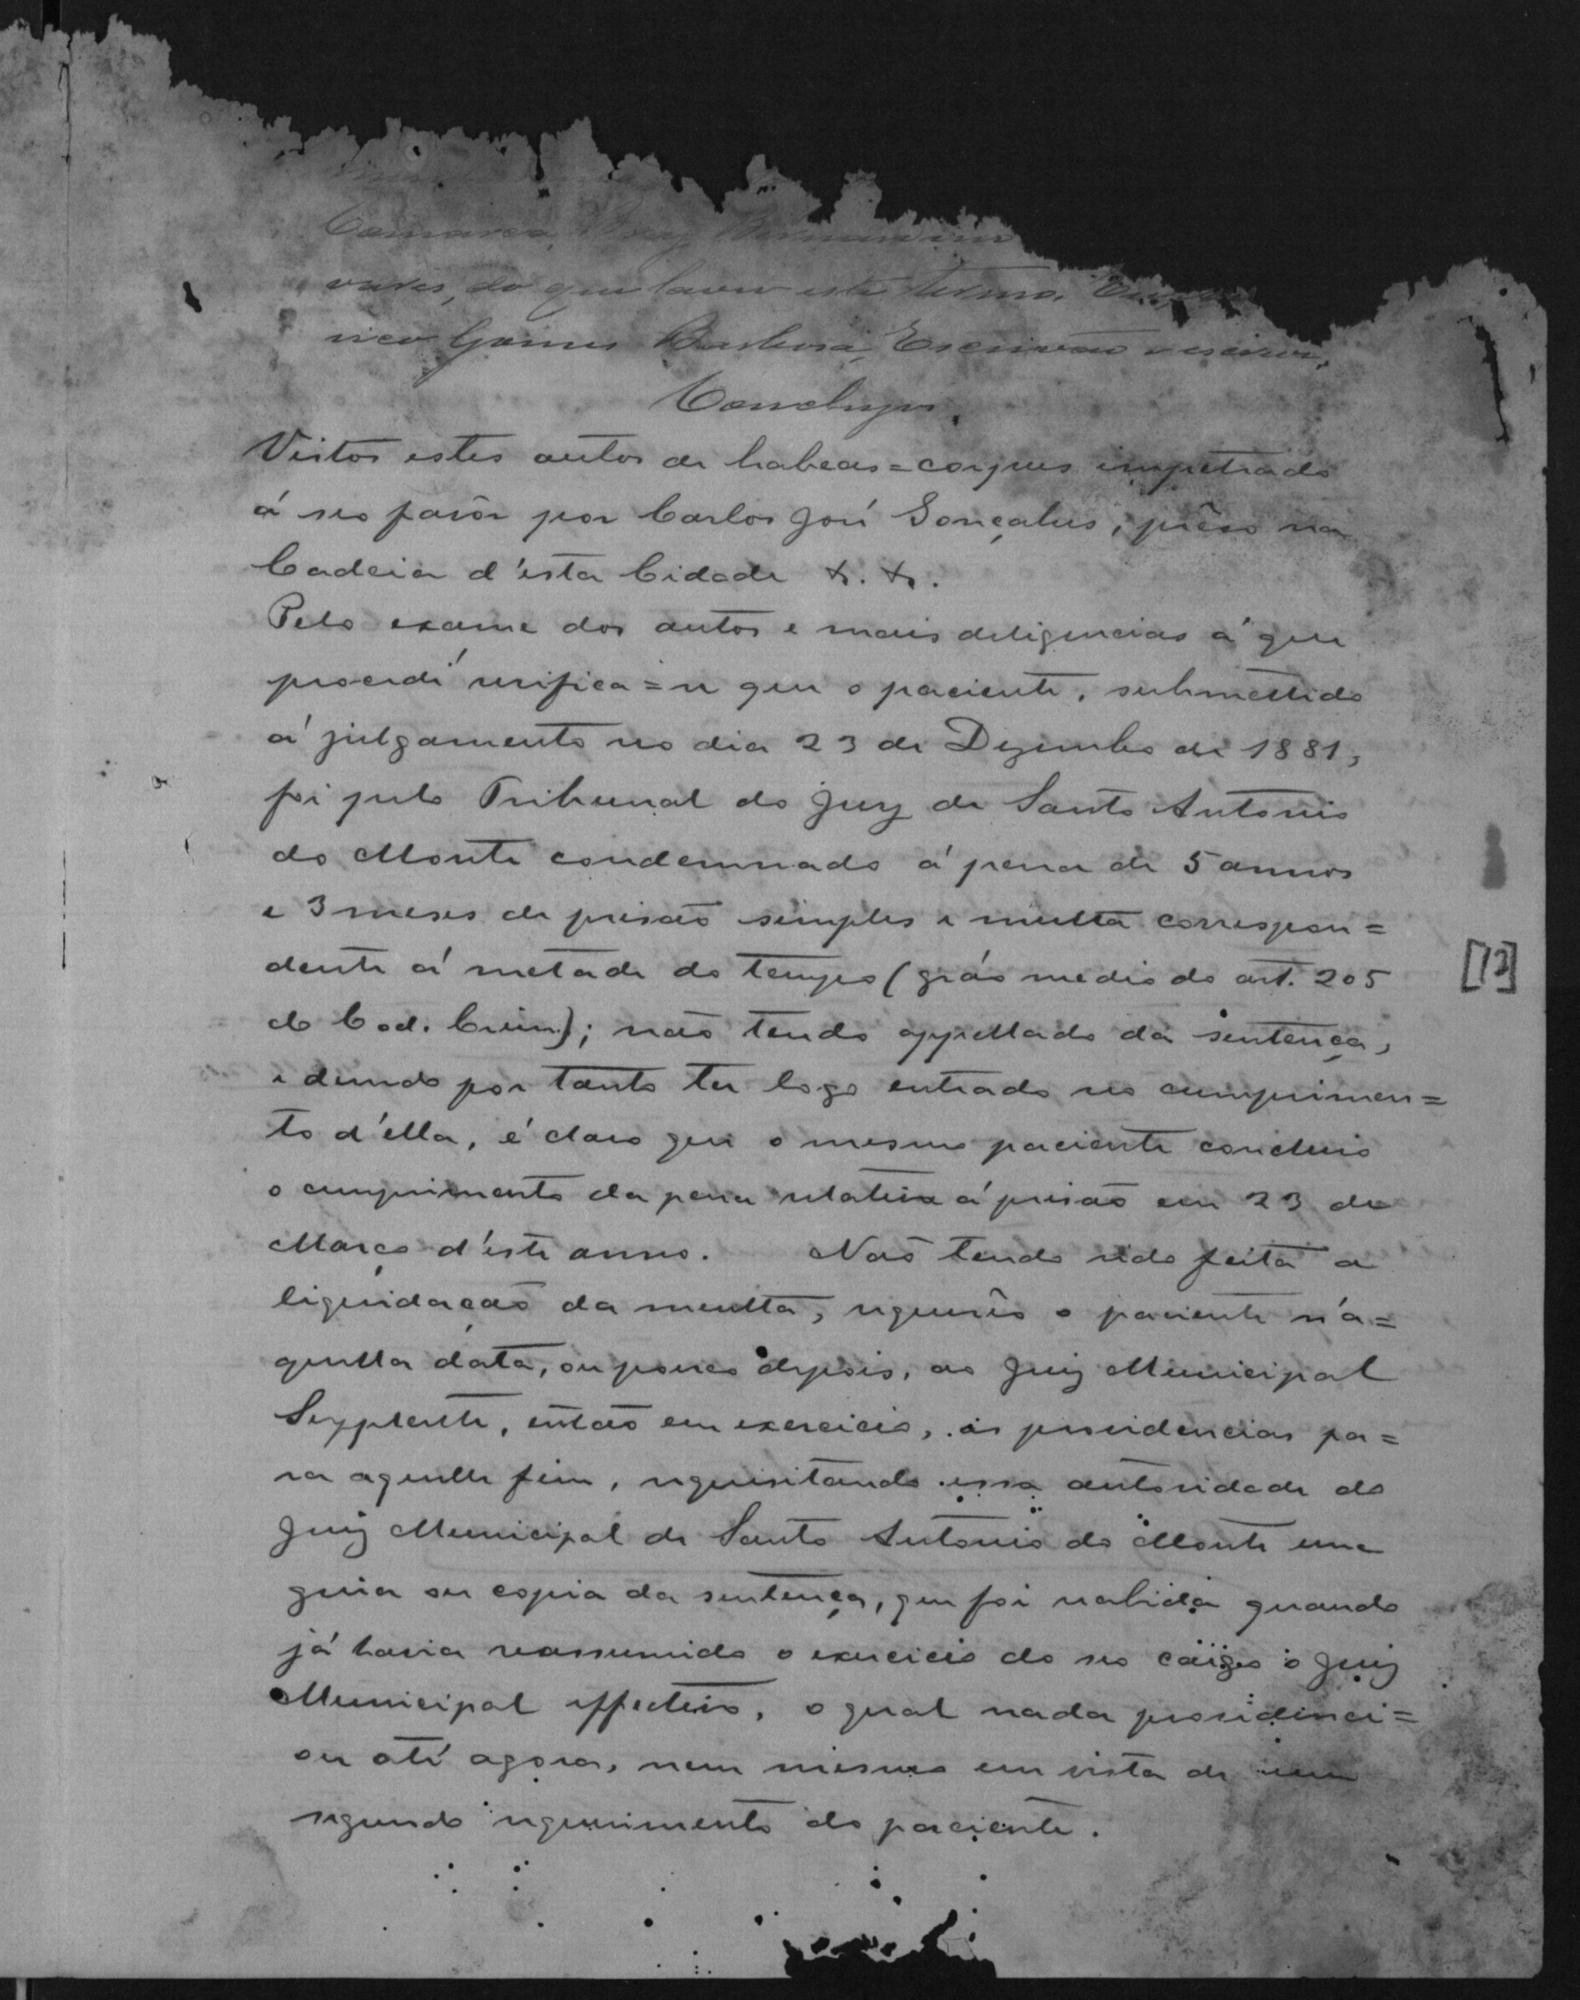 Comarca,
vares, do que lavro este termo. Eu,
rico Gomes Barbosa, Escrivão o escrevi.
Conclusos.
Vistos estes autos de habeas=corpus impetrado
á seo favôr por Carlos José Gonçalves, prêso na
Cadeia d'esta Cidade &. &.
Pelo exame dos autos e mais deligencias á que
procedi verifica=se que o paciente, submettido
á julgamento no dia 23 de Dezembro de 1881,
foi pelo Tribunal do Jury de Santo Antonio
do Monte condemnado á pena de 5 annos
e 3 meses de prisão simples e multa correspon=
dente á metade do tempo (gráo medio do art. 205
do Cod. Crim.); não tendo appellado da sentença,
e devendo por tanto ter logo entrado no cumprimen=
to d'ella, é claro que o mesmo paciente concluio
o cumprimento da pena relativa á prisão em 23 de
Março d'este anno. Não tendo sido feita a
liquidação da multa, requerêo o paciente n'a=
quella data, ou pouco depois, ao Juiz Municipal
Supplente, então em exercicio, as providencias pa=
ra aquelle fim, requisitando essa autoridade do
Juiz Municipal de Santo Antonio do Monte uma
guia ou copia da sentença, que foi recebida quando
já havia reassumido o exercicio do seo cargo o Juiz
Municipal effectivo, o qual nada providenci=
ou até agora, nem mesmo em vista de um
segundo requerimento do paciente.
[12]